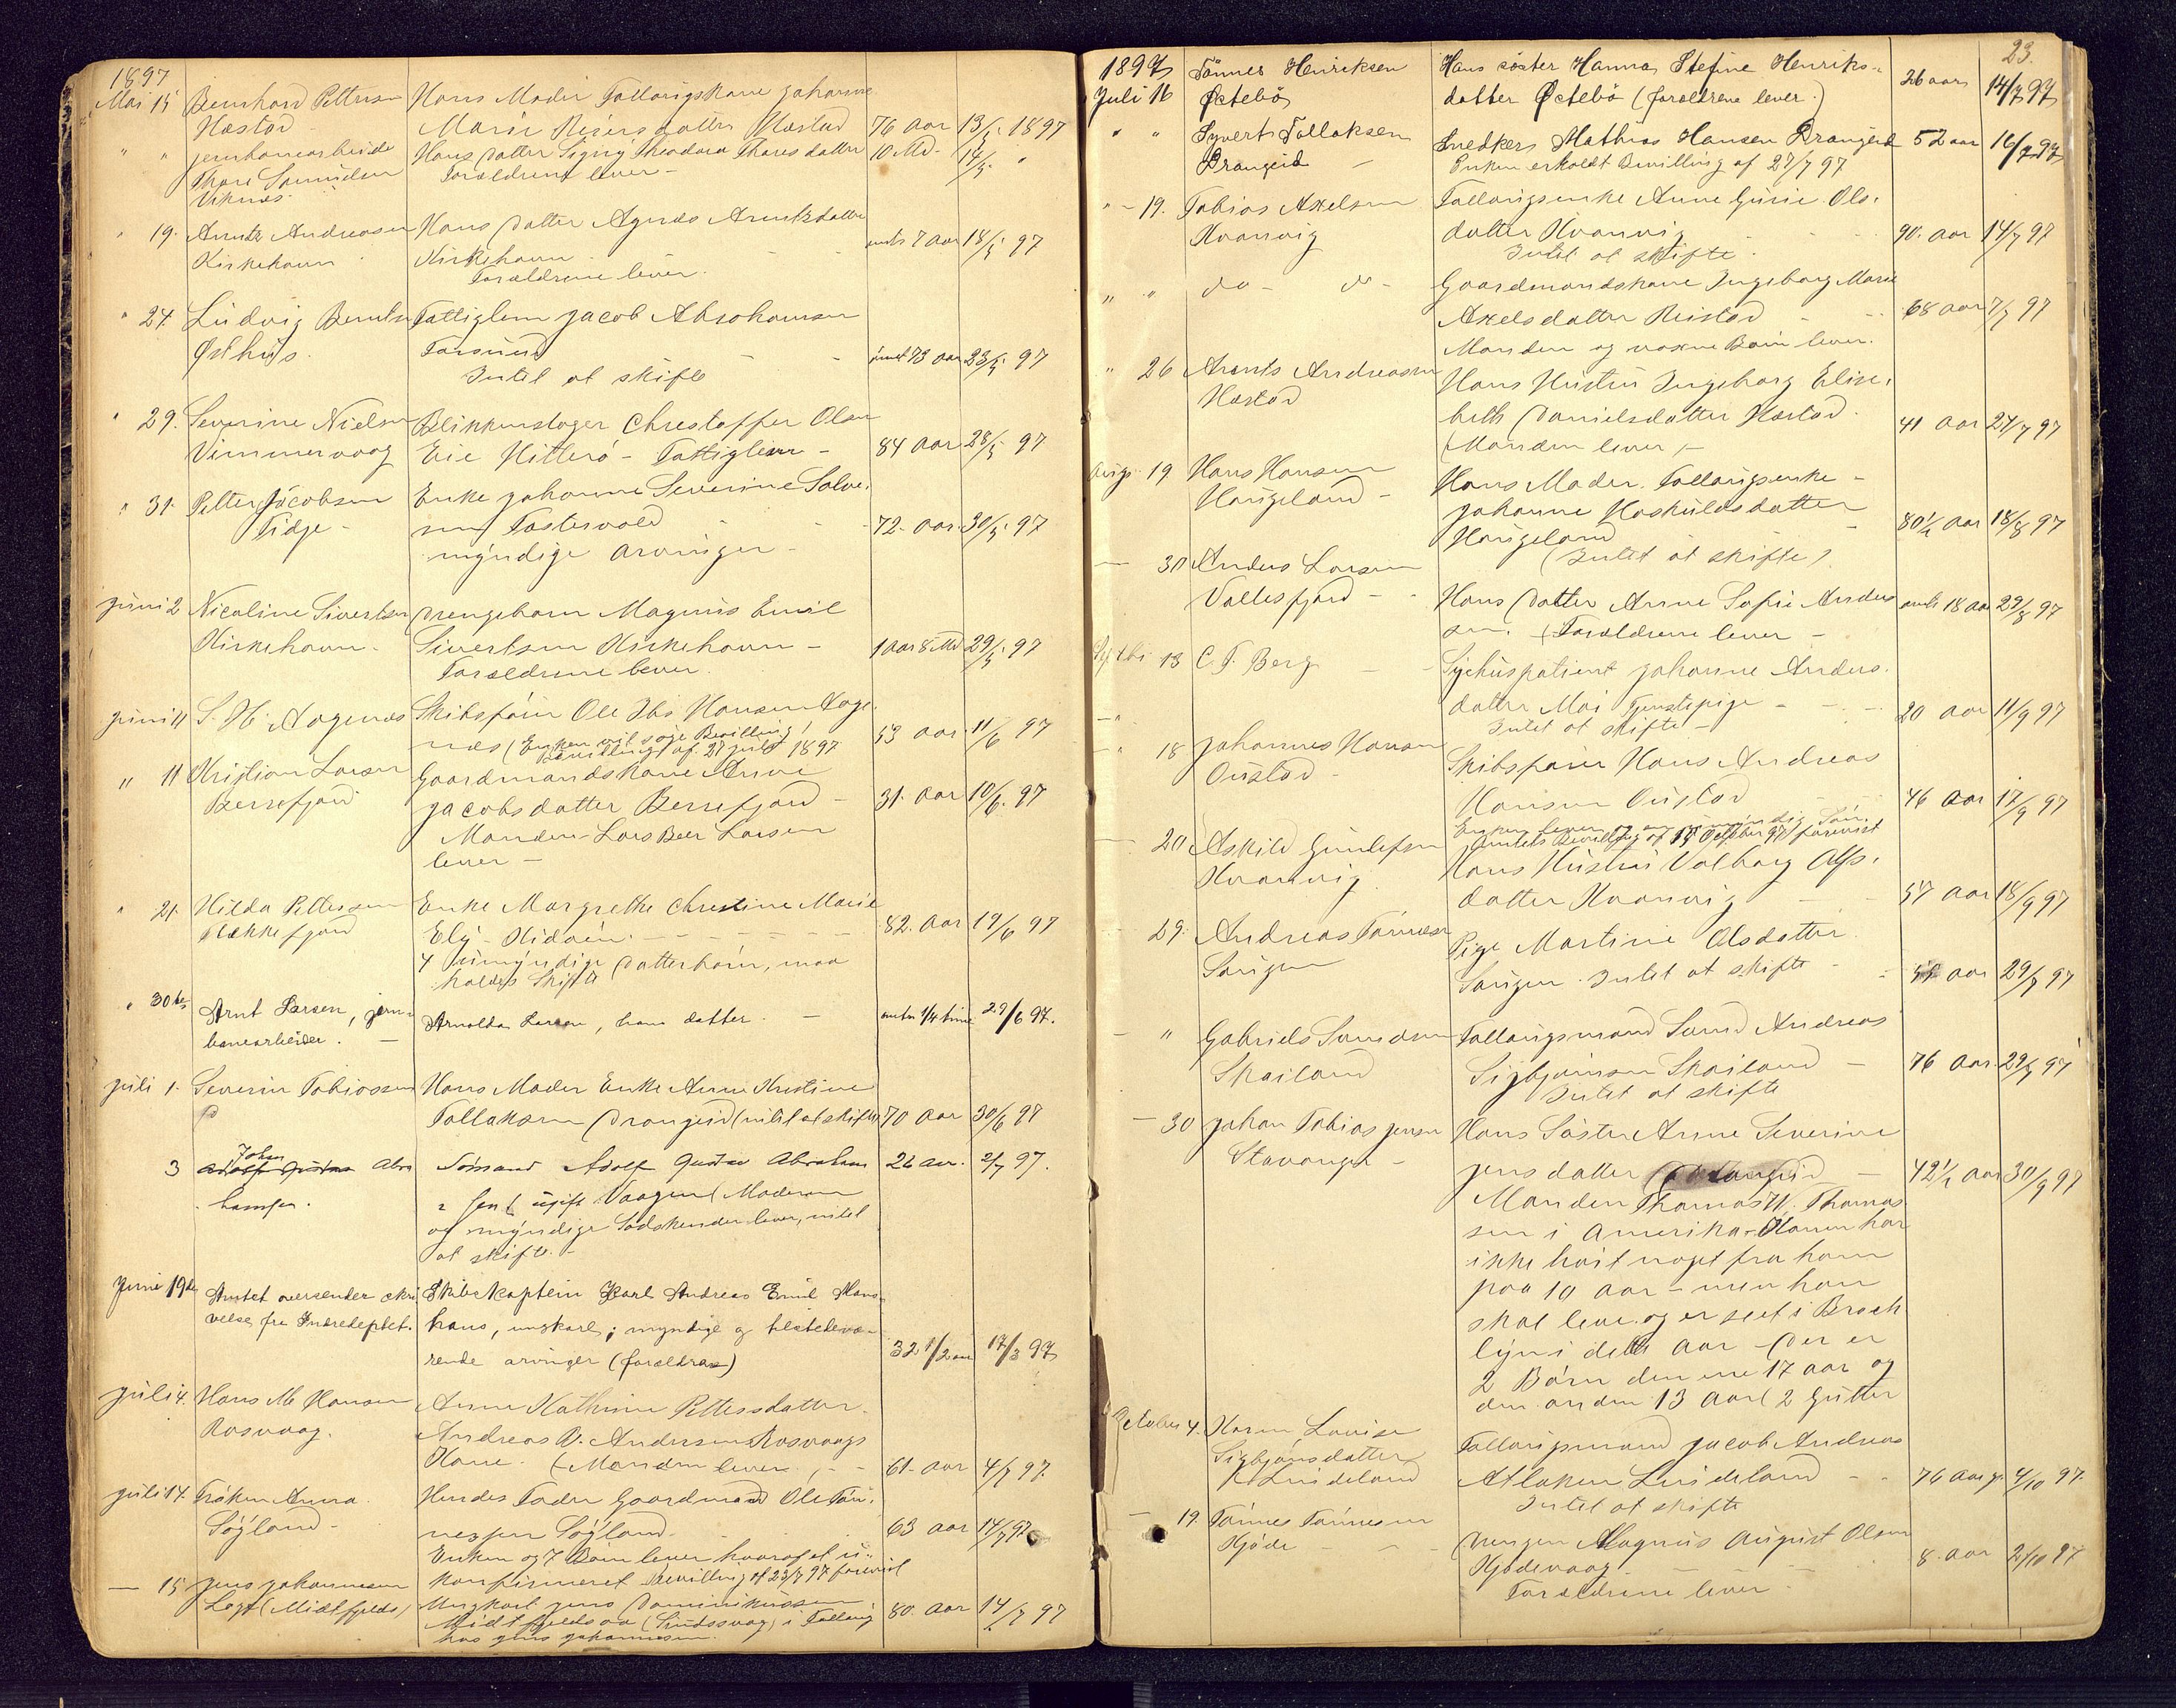 1897
Mai 15 Bernhard Pettersen Hans Moder Fattigskone Johanne
Hæstad Marie Reiersdatter Hæstad 76 aar 13/5 1897
" " jernbanearbeider Hans Datter Signy Theodora Thoresdatter 10 Md. 14/5 "
Thore Forældrene lever -
Viknæs
" 19. Arnts Andreasen Hans Datter Agnes Arntsdatter
Kirkehavn Kirkehavn 7 aar 18/5 97
Forældrene lever.
" 24. Ludvig Berntsen Fattiglem Jacob Abrahamsen
Østhus. Farsund 73 aar 23/5 97
Intet at skifte
" 29. Severine Nielsen Blikkenslager Christoffer Olsen
Vimmervaag Eie Hitterö - Fattiglem - 84 aar 28/5 97
" 31. Petter Jacobsen Enke Johanne Severine Salve-
Tidje - sen Fastevold 72. aar. 30/5 97
myndige arvinger -
juni 2 Nicoline Sivertsen Drengebarn Magnus Emil
Kirkehavn - Sivertsen Kirkehavn - 1 aar 8 Md 29/5 97
Forældrene lever.
juni 11 S. H. Aagenæs Skibsfører Ole Ibs Hansen Aage-
næs (Enken vil søge Bevilling) 53 aar 11/6 97
Bevilling af 27 juli 1897
" 11 Kristian Larsen Gaardmandskone Anne
Berrefjord Jacobsdatter Berrefjord - 31. aar 10/6 97
Manden Lars Beer Larsen
lever -
" 21. Hilda Pettersen Enke Margrethe Christine Marie
Flekkefjord Ely - Hidrøen. 82. aar 19/6 97
4 umyndige Datterbørn, maa
holdes Skifte
" 30te Arnt Larsen, jern- Arnolda Larsen, hans datter. - 1/4 time 29/6 97.
banearbeider. -
juli 1. Severin Tobiassen Hans Moder Enke Anne Kristine
Tollaksen Drangeid (intet at skifte) 70 aar 30/6 97
3 John Abra Sømand Adolf Gustav Abraham- 26 aar. 2/7 97.
hamsen. sen (ugift Vaagen (Moderen
og myndige Sødskender lever, intet
at skifte. -
Juni 19de Amtet oversender skri- Skibskaptein Karl Andreas Emil Hans-
velse fra Indredeptet. hans, ungkarl; myndige og tilstedevæ-
rende arvinger (forældrene) 32 1/2 aar 17/3 97
juli 4. Hans M. Hansen Anne Kathrine Pettersdatter
Rosvaag. Andreas V. Andersen Rosvaags
Kone. (Manden lever 61. aar 4/7 97.
juli 14. Frøken Anna Hendes Fader Gaardmand Ole Tøn-
Söyland - nessen Söyland. 63 aar 14/7 97
Enken og 7 Børn lever hvoraf et u-
konfirmeret Bevilling af 23/7 97 forevist
— 15 Jens Johannesen Ungkarl Jens Dominikussen
Log (Midtfjelds) Midtfjeldsaa (Sundsvaag) i Fattig 80. aar 14/7 97
hos Jens Johannesen.
23.
1897 Tönnes Henriksen Hans söster Hanna Stefine Henriks-
Juli 16 Öctebö datter Öctebö (forældrene lever.) 26 aar 14/7 97
" " Syverts Tollaksen Snedker Mathias Hansen Drangeid 52 aar 16/7 97
Drangeid - Enken erholdt Bevilling af 27/7 97
" - 19. Tobias Axelsen Fattigsenke Anne Gurie Ols-
Kvanvig datter Kvanvig 90. aar 14/7 97
Intet at skifte.
" " do - do - Gaardmandskone Ingeborg Marie
Axelsdatter Reistad 68 aar 7/7 97
Manden og voxne Børn lever.
" 26 Arnts Andreasen Hans Hustru Ingeborg Elise-
Hæstad beth Danielsdatter Hæstad. 41 aar 24/7 97
(Manden lever ,-
Aug. 19 Hans Hansen Hans Moder. Fattigsenke -
Haugeland - Johanne Haskuldsdatter
Haugeland 80 1/2 aar 18/8 97
(Intet at skifte)
— 30 Anders Larsen
Vollesfjord - Hans Datter Anne Sofie Anders 18 aar 29/8 97
sen. (Forældrene lever -
Septbr 13 C. F. Berg - Sygehuspatient Johanne Anders-
datter Moi Tjenstepige - 20 aar 11/9 97
Intet at skifte -
- " 18 Johannes Hansen Skibsfører Hans Andreas
Oustad - Hansen Oustad 46 aar 17/9 97
Enken lever og en umyndig Søn.
Amtets Bevilling af 14 October 97 forevist
— 20 Askild Gunlefsen Hans Hustru Valborg Alfs-
Kvanvig. datter Kvanvig 57 aar 18/9 97
- 29. Andreas Tönnesen Pige Martine Olsdatter
Saugen Saugen. Intet at skifte - aar 29/9 97
- " Gabriels Samdsen Fattigsmand Samd Andreas
Skailand Sigbjørnsen Skailand - 76 aar 29/9 97
Intet at skifte
— 30 Johan Tobias Jensen Hans Søster Anne Severine
Stavanger - Jensdatter Drangeid - 42 1/2 aar 30/9 97
Manden Thomas W. Thomas-
sen i Amerika - Konen har
ikke hørt noget fra ham
paa 10 aar - men han
skal leve og er seet i Brock-
lyn i dette Aar - Der er
2 Børn den ene 17 aar og
den anden 13 Aar (2 Gutter
October 4. Karen Lovise Fattigsmand Jacob Andreas
Sigbjørnsdatter Atlaksen Lindeland - 76 aar 4/10 97.
Lindeland Intet at skifte
— 19. Tönnes Tönnesen Drengen Magnus August Olsen
Hjøde - Hjødevaag 8. aar 2/10 97
Forældrene lever.